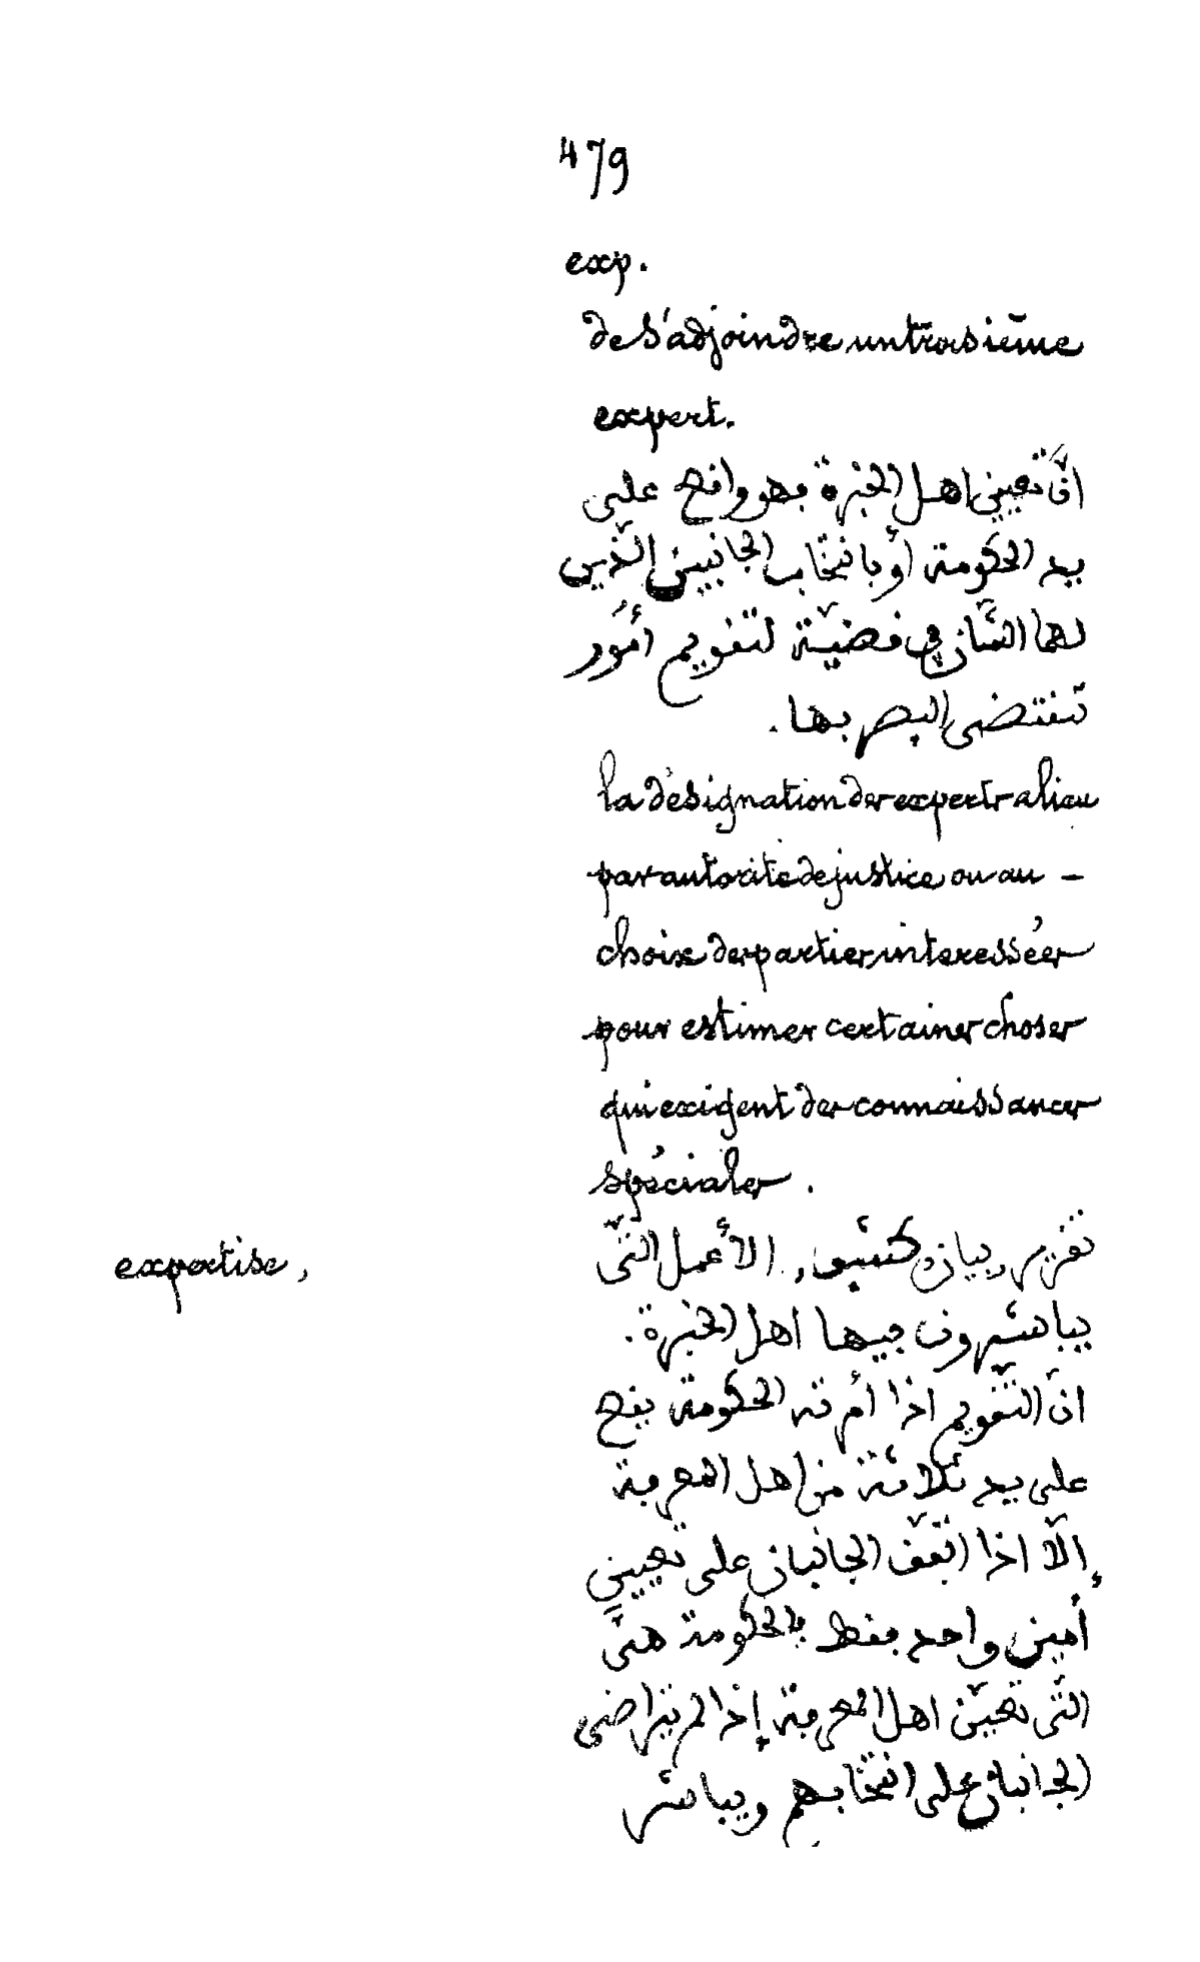 479
exp.
de s'adjoindre un troisième
expert.
انّ تعيين اهل الخبرة بهو وافع على
يد الحكومة أو بانتخاب الجانبين الذين
لهما الشان في فضيّة لتفويم أمور
تفتضى البصر بها.
la désignation des experts a lieu
par autorité de justice ou au -
choix des parties intéressées
pour estimer certaines choses
qui exigent des connaissances
spéciales.
expertise, تفرير بيان كشف, الأعمل التى
يباشرون بيها اهل الخبرة.
انّ التّفويم اذا أمرته الحكومة يفع
على يد ثلاثة من اهل المعربة
إلّا اذا اتّفف الجانبان على تعيين
أمين واحد بفط بالحكومة هى
التى تعيّن اهل المعربة إذا لم يتراضى
الجانبان على انتخابهم ويباشر